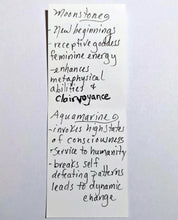 Moonstone
- New beginnings
- receptive goddess
feminine energy
- enhances
metaphysical
abilities &
clairvoyance
Aquamarine
- invokes high states
of consciousness
- Service to humanity
- breaks self
defeating patterns
leads to dynamic
change